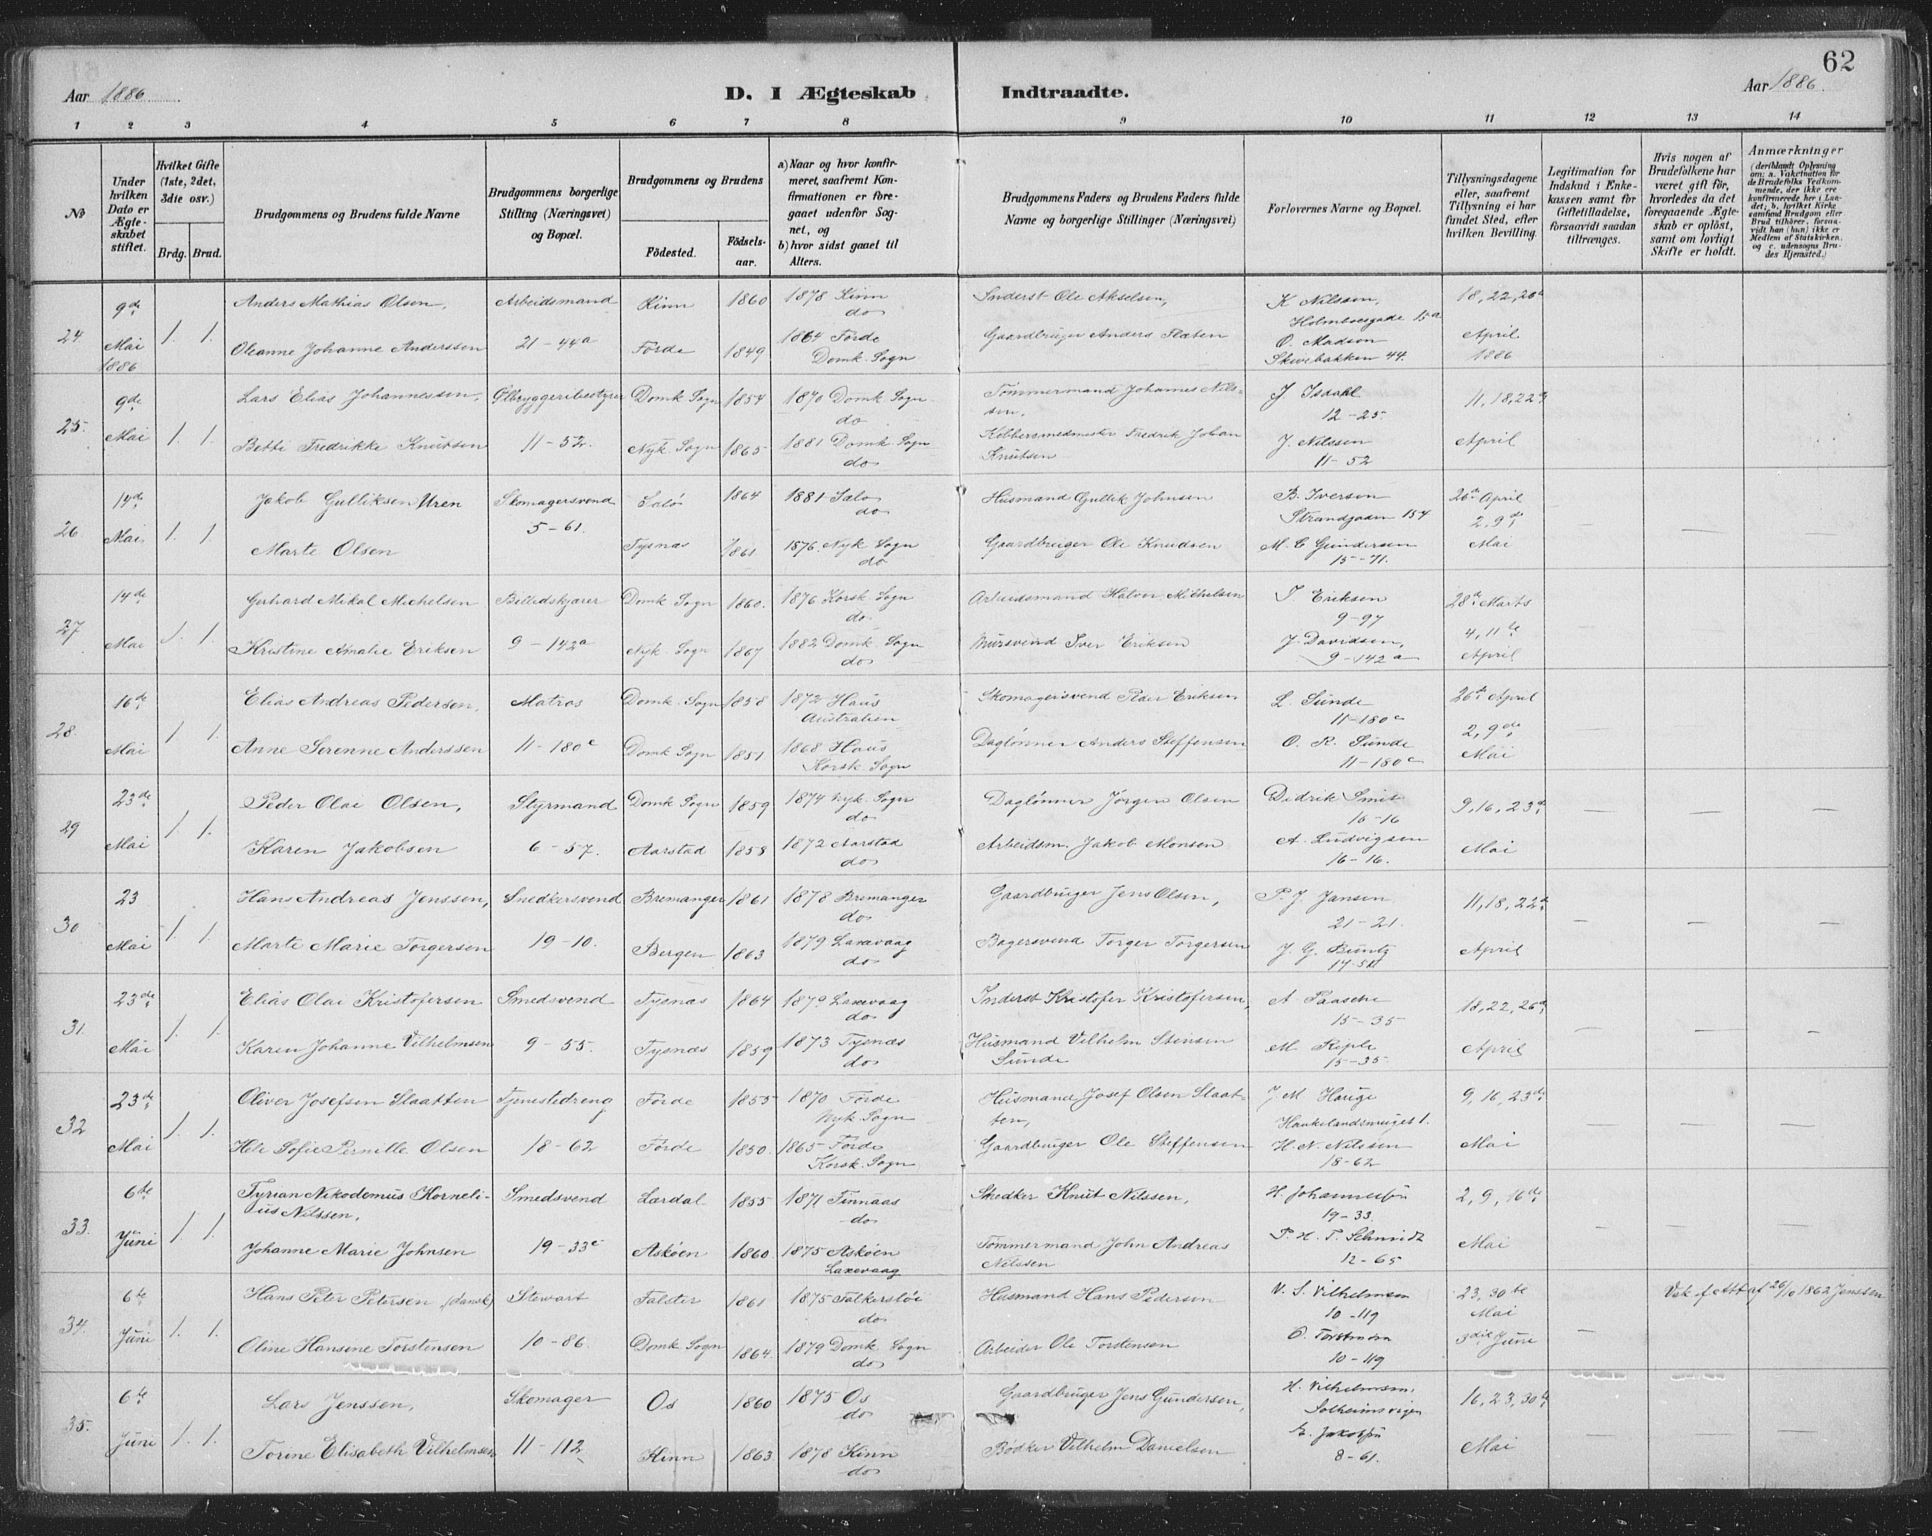 62
Aar 1886
D. I Ægteskab Indtraadte.
Aar 1886.
1 2 3 4 5 6 7 8 9 10 11 12 13 14
№
Under hvilken Dato er Ægteskabet stiftet.
Hvilket Gifte (1ste, 2det, 3die osv.)
Brdg. Brud.
Brudgommens og Brudens fulde Navne
Brudgommens borgerlige Stilling (Næringsvei) og Bopæl.
Brudgommens og Brudens
Födested.
Födselsaar.
a) Naar og hvor konfirmeret, saafremt Konfirmationen er foregaaet udenfor Sognet, og
b) hvor sidst gaaet til Alters.
Brudgommens Faders og Brudens Faders fulde Navne og borgerlige Stillinger (Næringsvei)
Forlovernes Navne og Bopæl.
Tillysningsdagene eller, saafremt Tillysning ei har fundet Sted, efter hvilken Bevilling.
Legitimation for Indskud i Enkekassen samt for Giftetilladelse, forsaavidt saadan tiltrænges.
Hvis nogen af Brudefolkene har været gift för, hvorledes da det foregaaende Ægteskab er oplöst, samt om lovligt Skifte er holdt.
Anmærkninger
24. 9de Mai 1886 1. 1.
Anders Mathias Olsen, Arbeidsmand Kinn 1860 1878 Kinn do Inderst Ole Akselsen, K Nilssen, Holmboesgade 15a 18, 22, 26de
Oleanne Johanne Anderssen 21-44a Förde 1849 1864 Förde Domk. Sogn Gaardbruger Anders Flaten O. Madsen Skivebakken 44. April 1886
25. 9de Mai 1. 1.
Lars Elias Johannessen, Ølbryggeribestyrer Domk Sogn 1854 1870 Domk Sogn do Tømmermand Johannes Nilssen, J Isdahl 12-25. 11, 18, 22de
Betti Fredrikke Knutsen 11-52. Nyk. Sogn 1865 1881 Domk. Sogn do Kobbersmedmester Fredrik Johan Knutsen J. Nilssen 11-52 April
26 14de Mai 1. 1.
Jakob Gulliksen Uren Skomagersvend 1864 1881 do Husmand Gullik Johnsen B. Iversen Strandgaden 154 26de April
Marte Olsen 5-61. Tysnæs 1861 1876 Nyk Sogn do Gaardbruger Ole Knudsen M. C Gundersen 15-71. 2, 9de Mai
27 14de Mai 1. 1.
Gerhard Mikal Michelsen Billedskjærer Domk Sogn 1860. 1876 Korsk Sogn do Arbeidsmand Halvor Mithelsen I. Eriksen 9-97 28de Marts
Kristine Amalie Eriksen 9-142a Nyk. Sogn 1867 1882 Domk Sogn do Mursvend Iver Eriksen J. Davidsen, 9-142a 4, 11te April
28. 16de Mai 1. 1.
Elias Andreas Pedersen, Matros Domk. Sogn 1858 1872 Haus Australien Skomagersvend Peder Eriksen L. Sunde 11-180c 26de April
Anne Serenne Anderssen 11-180c Domk Sogn 1851 1868 Haus Korsk. Sogn Daglønner Anders Steffensen O. R. Sunde 11-180c 2, 9de Mai
29 23de Mai 1. 1.
Peder Olai Olsen, Styrmand Domk Sogn 1859 1874 Nyk. Sogn do Daglønner Jørgen Olsen Didrik Smit 16-16 9, 16, 23de
Karen Jakobsen 6-57. Aarstad 1858 1872 Aarstad do Arbeidsm. Jakob Monsen A. Ludvigsen 16-16. Mai
30 23 Mai 1. 1.
Hans Andreas Jenssen, Snedkersvend Bremanger 1861 1878 Bremanger do Gaardbruger Jens Olsen, P. J. Jansen 21-21. 11, 18, 22de
Marte Marie Torgersen 19-10. Bergen 1863 1879 Laxevaag do Bagersvend Torger Torgersen J. G. Buntz April
31. 23de Mai 1. 1.
Elias Olai Kristofersen Smedsvend Tysnæs 1864 1879 Laxevaag do Inderst Kristofer Kristofersen, A Paasche 15-35 18, 22, 26de
Karen Johanne Vilhelmsen 9-55. Tysnæs 1859 1873 Tysnæs do Husmand Vilhelm Stensen Sunde M. Riple 15-35. April
32 23de Mai 1. 1.
Oliver Josefsen Slaatten Tjenestedreng Förde 1855 1870 Förde Nyk Sogn Husmand Josef Olsen Slaatten, J M Hauge Haukelandsmuget 1. 9, 16, 23de
Sofie Pernille Olsen 18-62 Förde 1850. 1865 Förde Korsk. Sogn Gaardbruger Ole Steffensen H. N. Nilssen 18-62 Mai
33. 6te Juni 1. 1.
Tyrian Nikodemus Kornelius Nilssen, Smedsvend Lærdal 1855 1871 Finnaas do Snedker Knut Nilssen, H. Johannesen 19-33 2, 9, 16de
Johanne Marie Johnsen 19-33c Askøen 1860. 1875 Askøen Laxevaag Tømmermand John Andreas Nilssen P. H. T. Schmidt 12-65 Mai
34. 6te Juni 1. 1.
Hans Peter Petersen (dansk) Stewart Falster 1861 1875 Falkersløi do Husmand Hans Pedersen V. S. Vilhelmsen 10-119 23, 30te Mai Vak. f. Att af 26/10 1862 Jenssen
Oline Hansine Torstensen 10-86. Domk Sogn 1864 1879 Domk. Sogn do Arbeider Ole Torstensen O. Torstensen 10-119 3die Juni
35. 6te Juni 1. 1.
Lars Jenssen, Skomager Os 1860 1875 Os do Gaardbruger Jens Gundersen, H. Vilhelmsen Solheimsvigen 16, 23, 30te
Torine Elisabeth Vilhelmsen 11-112 Kinn 1863 1878 Kinn do Bödker Vilhelm Danielsen E. Jakobsen 8-61. Mai